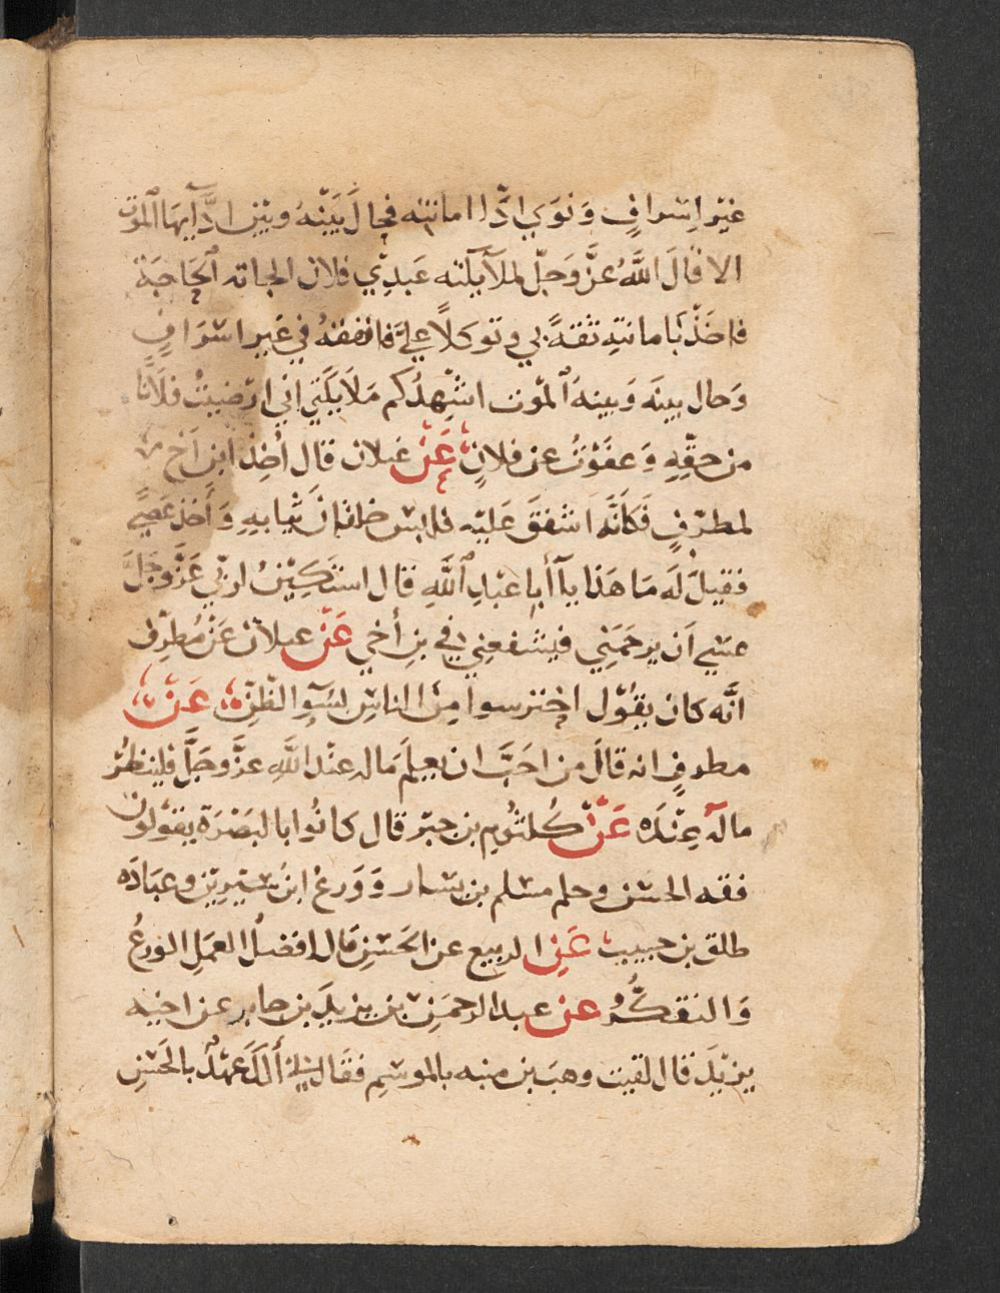 غير اِسراف وَنوَي ادّاا امانته فحالَ بَيَنْهُ وبَين ادَّآيها الموت
الا قالَ اللَّهُ عزَّ وَجلّ لملآيلته عَبدِي فلان الجاته الحَاجَة
فاخَذْ بَامانتهِ ثقةً بي وتوكلاً عليَّ فانفقهُ في غَير اسْرَافٍ
وَحال بينَه وَبينهَ الموت اشْهِدُكم مَلاَيكَتي اني ارْضيتُ فلاَنًا
من حقّهِ وَعفَوْتُ عن فلانٍ عَنْ غيلان قال أُخِذَ ابن اَخ
لمطرّفٍ فَكاَنَّه اشفقَ عَليْه فلبسَ خلقان ثيابهِ وَأخذ عَصًي
فقيلَ لَه مَا هَذا يآ أبا عبْدِ اللَّهِ قال استَكِيْنُ لربّي عَزَّ وَجَلَّ
عسَي اَن يرحَمَني فيشفعِني في بنِ أخي عَنْ غيلان عَنْ مُطرِف
انَّه كان يقُوْل احْترسوا مِنَ الناسِ بسُوِٓا الظنّ عَنْ
مطرفٍ انه قالَ من احَبَّ ان يعلَم مَاله عنْد اللَّهِ عزَّ وجَلَّ فلينظُرْ
ما لله عِنْدَه عَنْ كُلثُومِ بن جبّر قال كانُوا بالبَصْرَة يقوُلون
فقه الحسَن وحلم مسْلم بن يسَار وَوَرعُ ابنُ سَيْرِيْن وعبَادَه
طلق بن حبيب عَنِ الربيع عن الحَسَنِ قال افضلُ العمَلِ الورعُ
وَالتفكُّرُ عن عبد الرحمَن بن يزيدَ بن جابر عن اخيه
يزيْدَ قال لقيت وهبَ بن منبه بالموسِم فقَال لي أَلَكَ عهْدٌ بالحَسَنِ